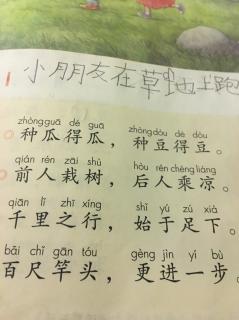 小朋友在草地上跑
zhòng guā dé guā zhòng dòu dé dòu
种瓜得瓜，种豆得豆。
qián rén zāi shù hòu rén chéng liáng
前人栽树，后人乘凉。
qiān lǐ zhī xíng shǐ yú zú xià
千里之行，始于足下。
bǎi chǐ gān tóu gèng jìn yí bù
百尺竿头，更进一步。